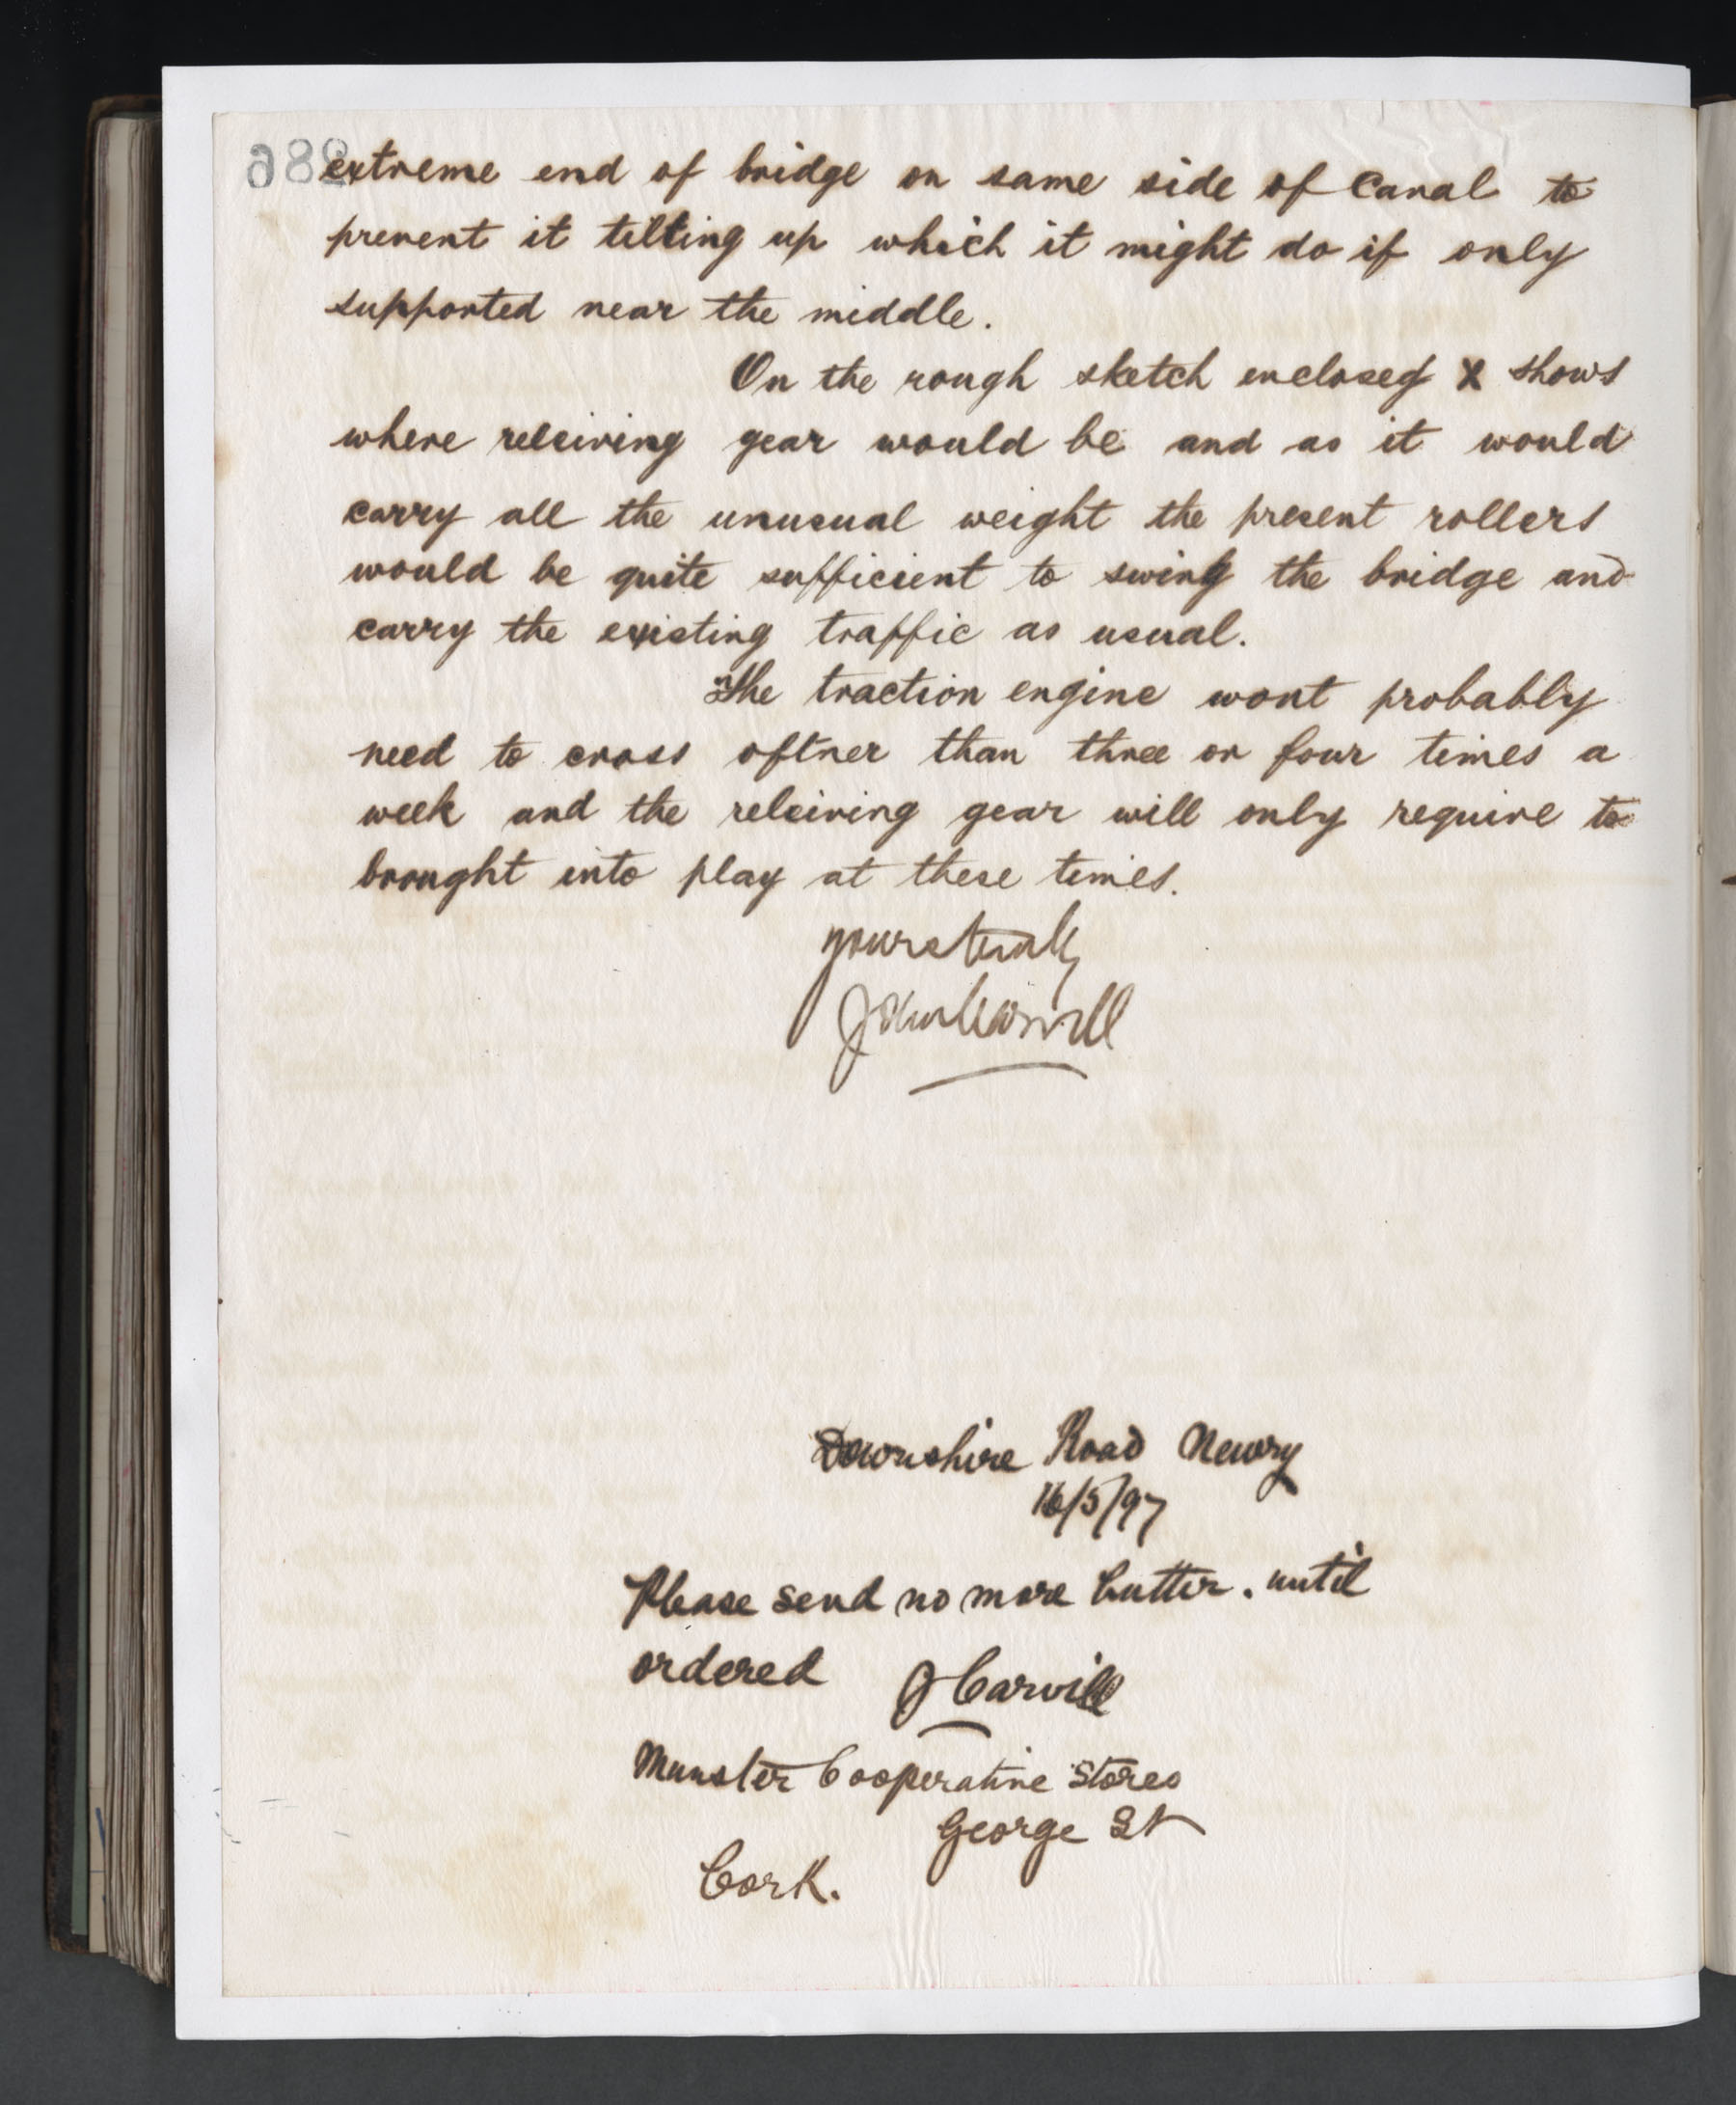 286
extreme end of bridge on same side of Canal to
prevent it tilting up which it might do if only
supported near the middle.
On the rough sketch enclosed X shows
where releiving gear would be and as it would
carry all the unusual weight the present rollers
would be quite sufficient to swing the bridge and
carry the existing traffic as usual.
The traction engine wont probably
need to cross oftner than three or four times a
week and the releiving gear will only require to
brought into play at these times.
yours truly
John Carvill
Downshire Road Newry
16/5/97
Please send no more butter. until
ordered J Carvill
Munster Cooperative Stores
George St
Cork.